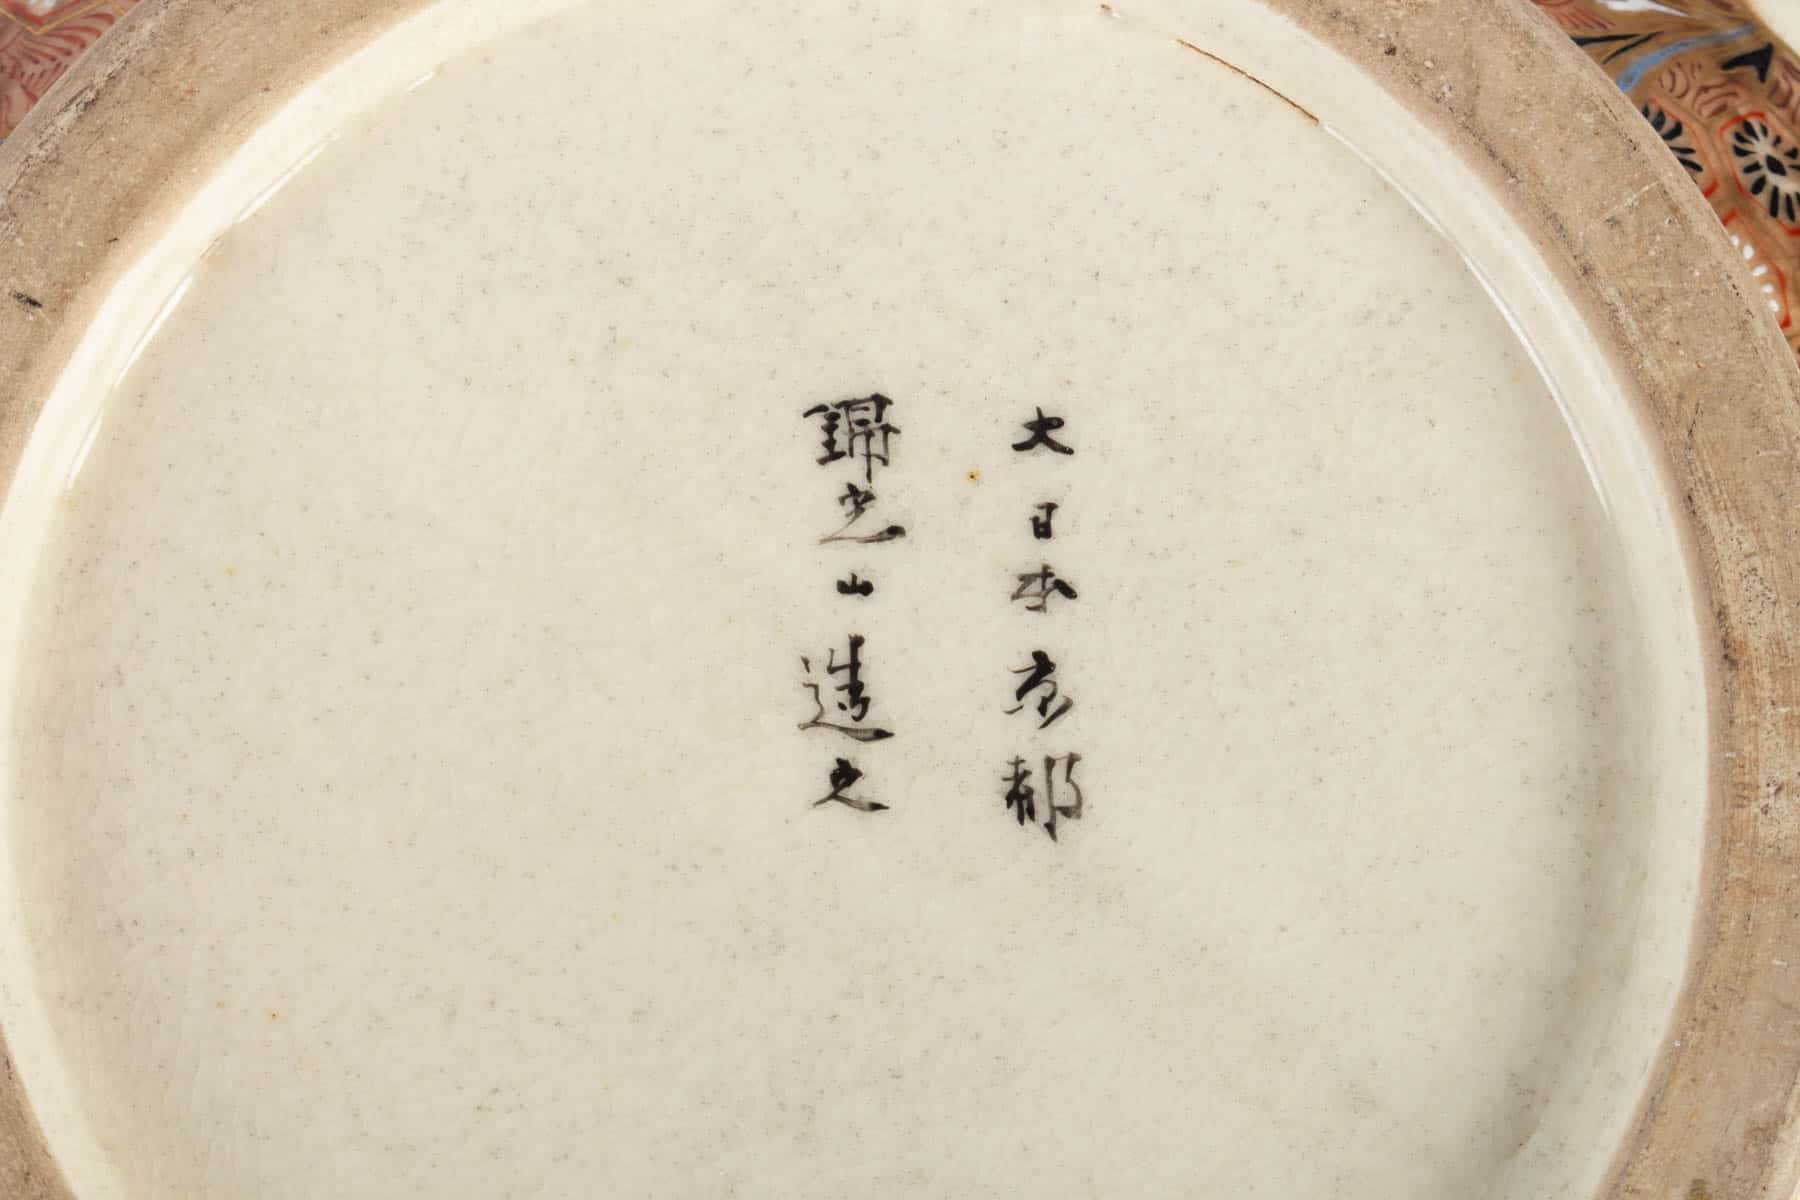 大日本京都
錦光山造之